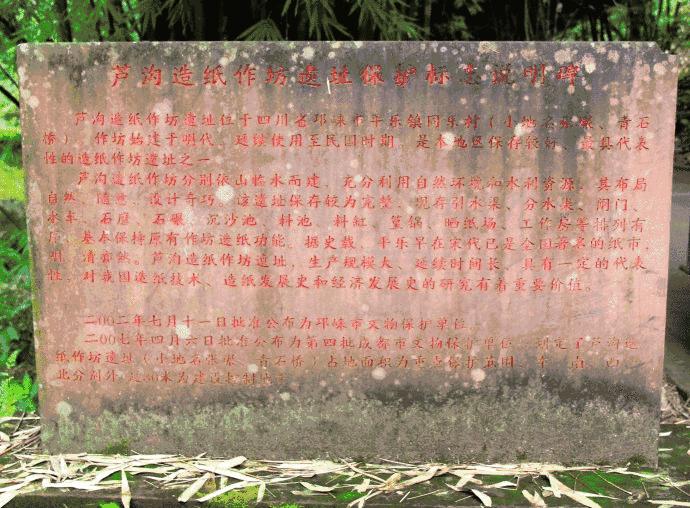 芦沟造纸作坊遗址保护标志说明碑
芦沟造纸作坊遗址位于四川省邛崃市平乐镇同乐村（小地名张坝、青石
桥）。作坊始建于明代，延续使用至民国时期，是本地区保存较好、最具代表
性的造纸作坊遗址之一。
芦沟造纸作坊分别依山临水而建，充分利用自然环境和水利资源。其布局
自然、随意，设计奇巧。该遗址保存较为完整，现存引水渠、分水渠、闸门、
水车、石磨、石碾、沉沙池、料池、料缸、篁锅、晒纸场、工作房等排列有
序，基本保持原有作坊造纸功能。据史载，平乐早在宋代已是全国著名的纸市，
明、清亦然。芦沟造纸作坊遗址，生产规模大、延续时间长，具有一定的代表
性，对我国造纸技术、造纸发展史和经济发展史的研究有着重要价值。
二〇〇二年七月十一日批准公布为邛崃市文物保护单位。
二〇〇七年四月六日批准公布为第四批成都市文物保护单位，划定了芦沟造
纸作坊遗址（小地名张坝、青石桥）占地面积为重点保护范围，东、南、西、
北分别外延 米为建设控制地带